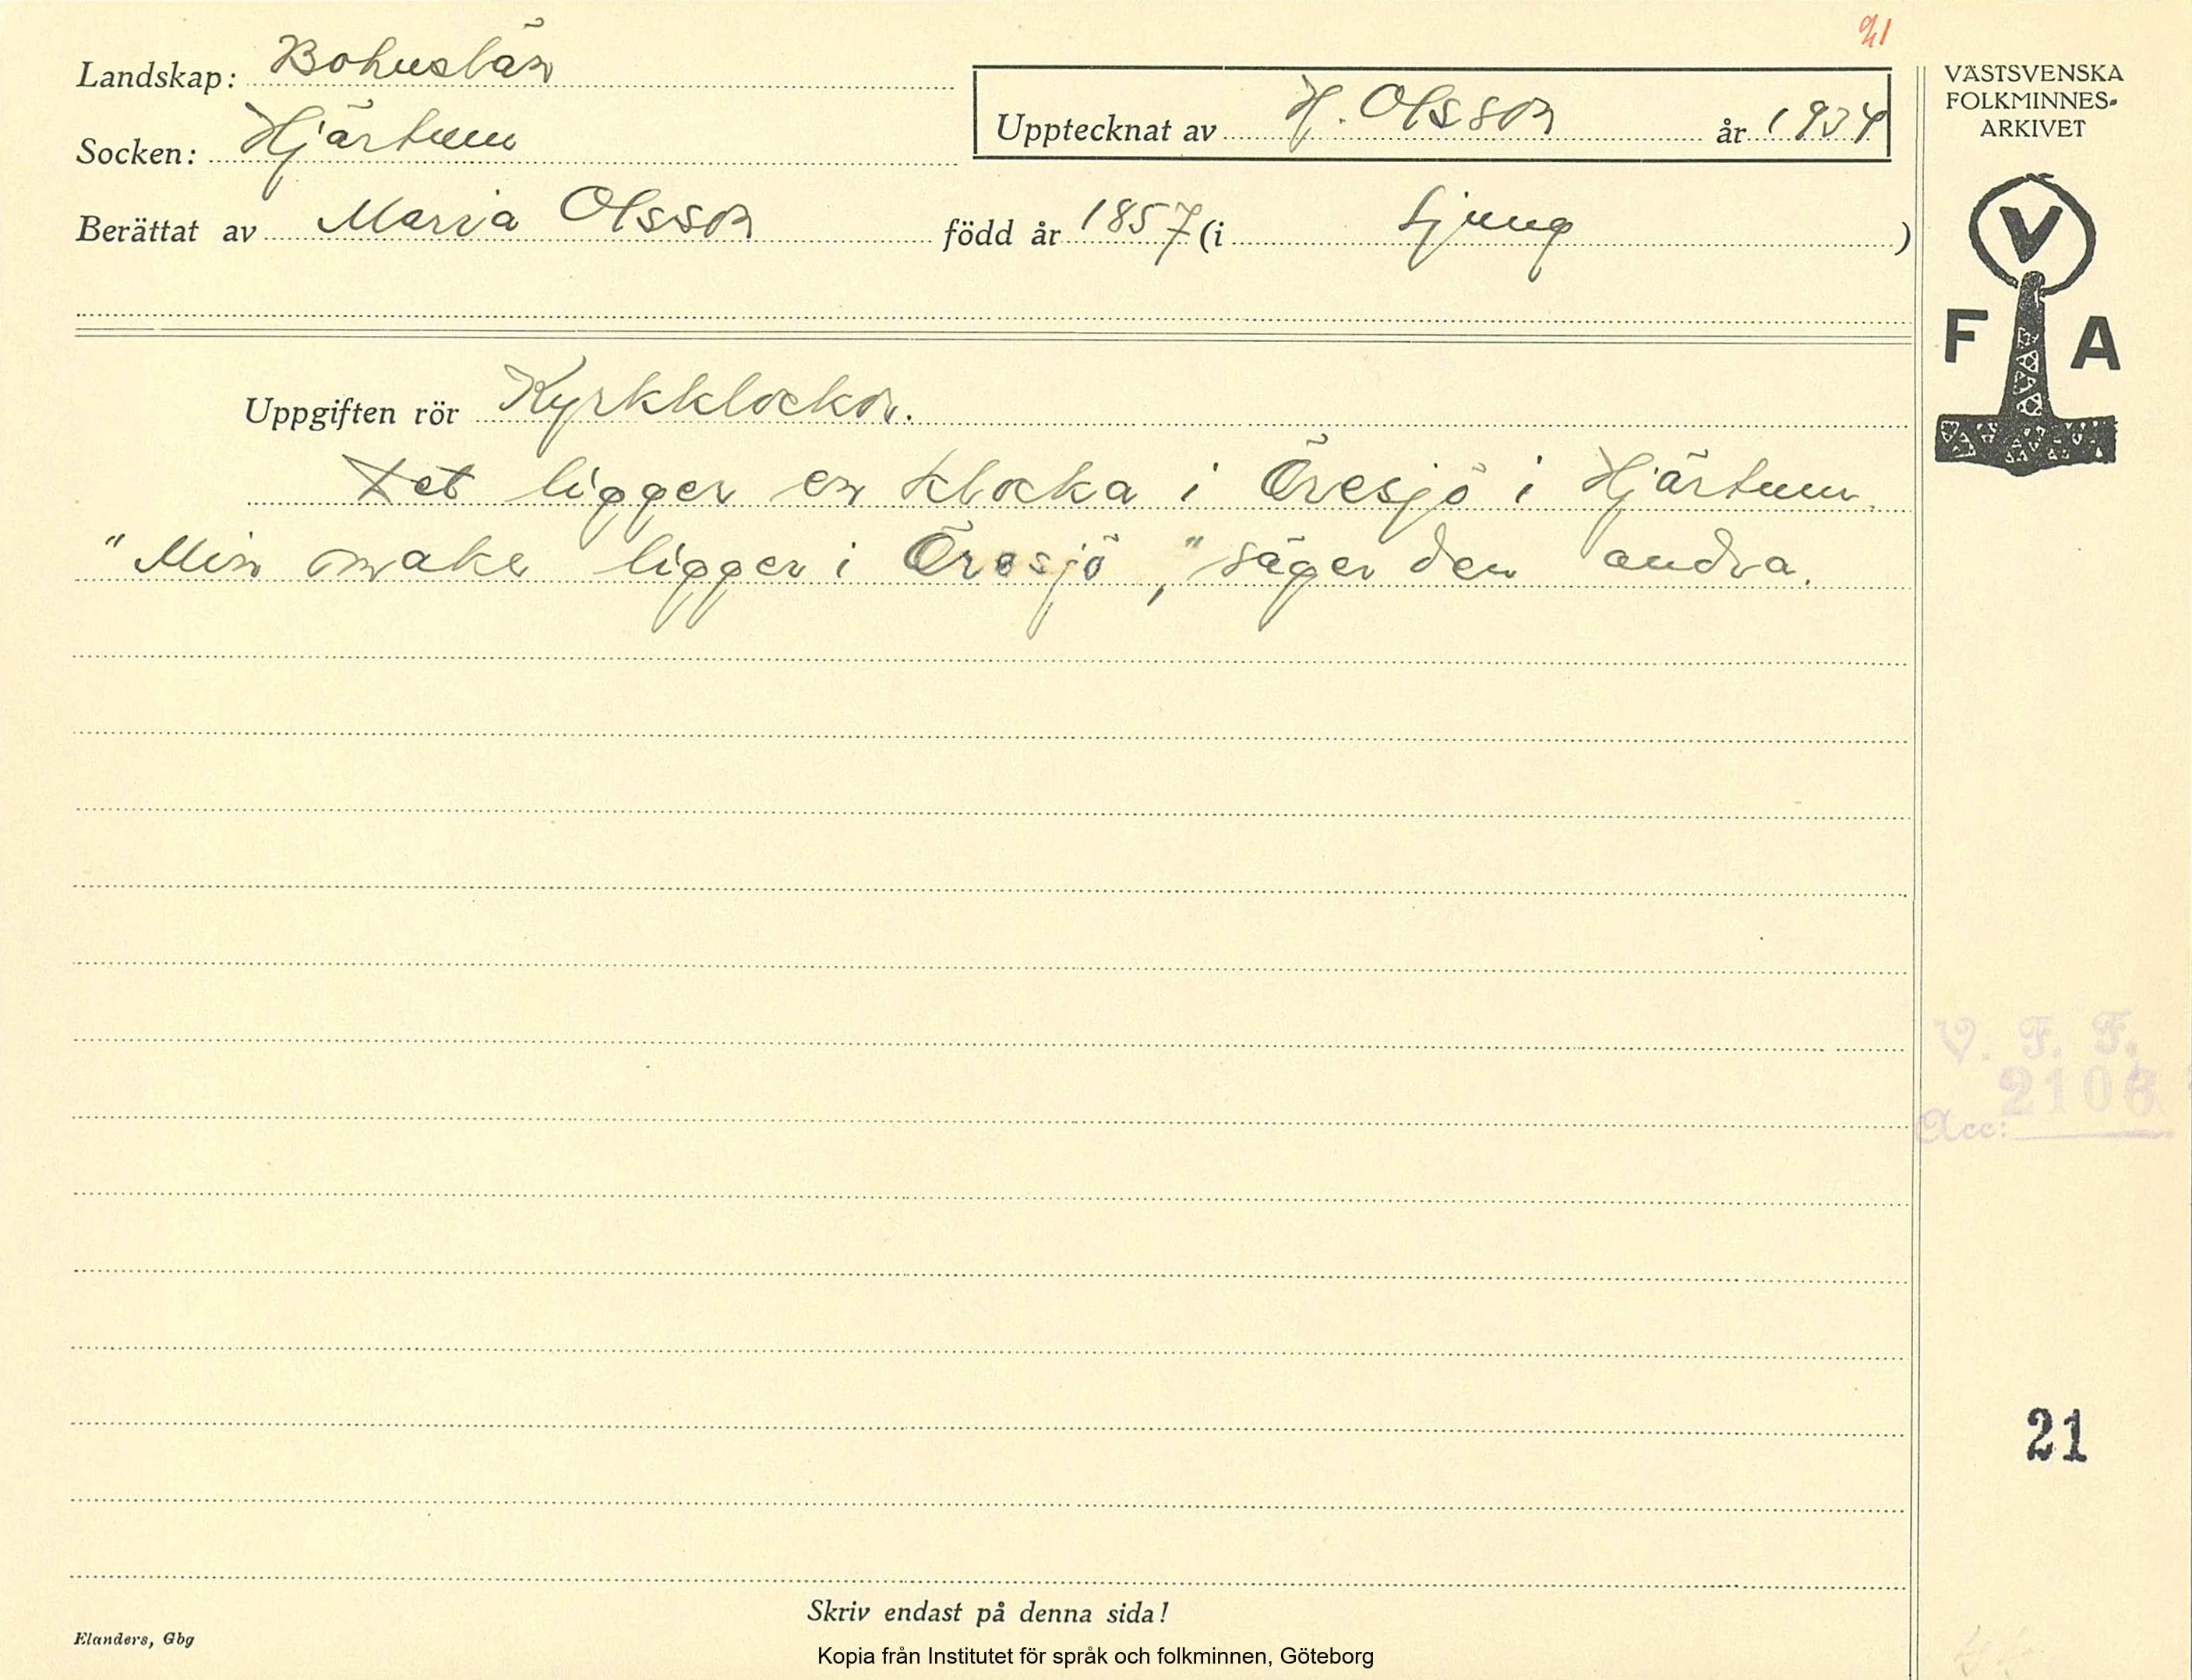 21
Landskap: Bohuslän
Socken: Hjärtum
Upptecknat av H. Olsson år 1934
Berättat av Maria Olsson född år 1857 (i Ljung)
VÄSTSVENSKA
FOLKMINNES-
ARKIVET
V
F A
Uppgiften rör Kyrkklockor.
Det ligger en klocka i Öresjö i Hjärtum.
"Min make ligger i Öresjö," säger den andra.
V. F. F.
2106
Acc:
21
Skriv endast på denna sida!
Elanders, Gbg
Kopia från Institutet för språk och folkminnen, Göteborg